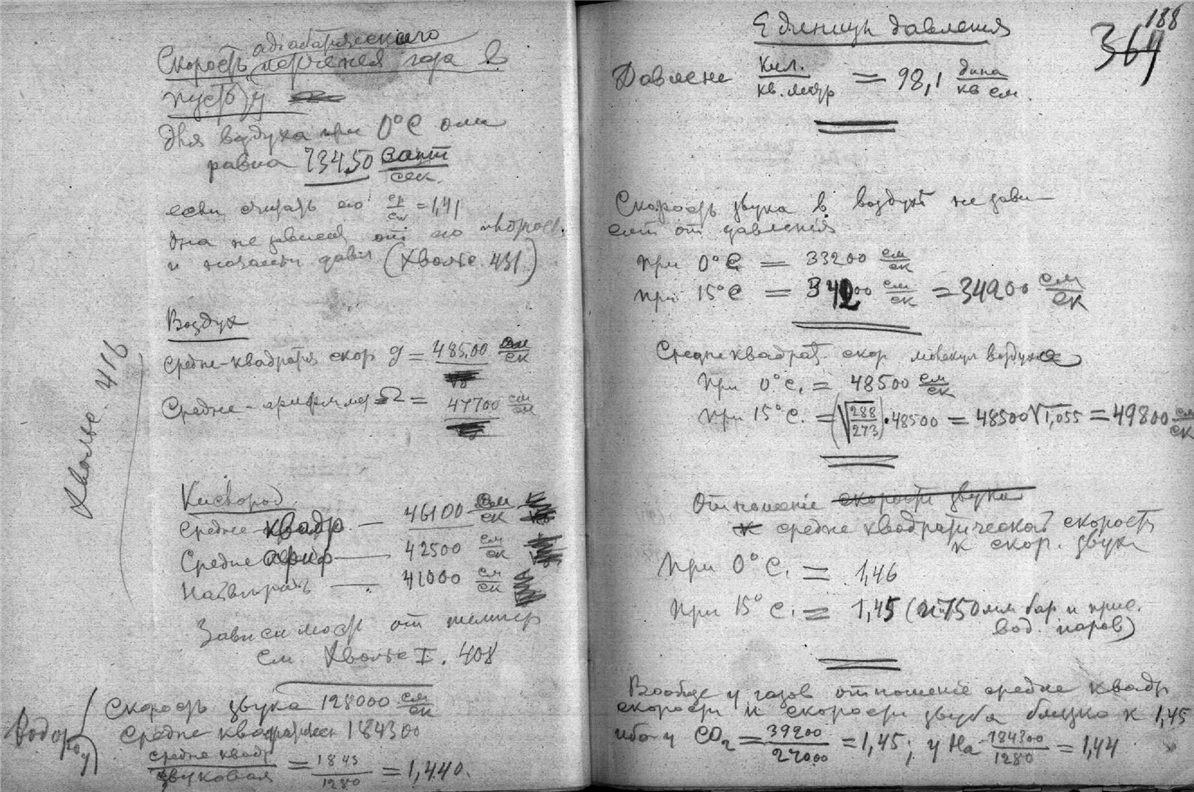 Скорость адіабатическаго
истеченія газа в
пустоту
для воздуха при 0°С она
равна 734,50 сант/сек.
если считать его cp/cv = 1,41
она не зависит от его
и начальн. давл (Хвольс. 431)
Воздух
Хвольс. 416
Средне-квадратич скор g = 485,00 см/сек
Средне-арифм Ω = 47700 см/сек
Кислород
Средне квадр — 46100 см/сек
Средне ариф — 42500 см/сек
— 41000 см/сек
Зависимость от темпер
см Хвольс I. 408
Водород
Скорость звука 128000 см/сек
Средне квадратическ 184300
средне квадр/звуковая = 1843/1280 = 1,440.
188
364
Единицы давления
Давление кил./кв. метр = 98,1 дина/кв см.
Скорость звука в воздухе не зави-
сит от давления
при 0°С = 33200 см/сек
при 15°С = 34200 см/сек = 34200 см/сек
Средне квадрат. скор молекул воздуха
при 0°С. = 48500 см/сек
при 15°С. = (√288/273)·48500 = 48500√1,055 = 49800 см/сек
Отношение скорости звука
к средне квадратической скорость
к скор. звук
При 0°С. = 1,46
При 15°С. = 1,45 (и 750 мм бар и прис.
вод. паров)
Вообще у газов отношение средне квадр
скорости к скорости звука близко к 1,45
ибо у CO2 = 39200/27000 = 1,45; у На 184300/1280 = 1,44